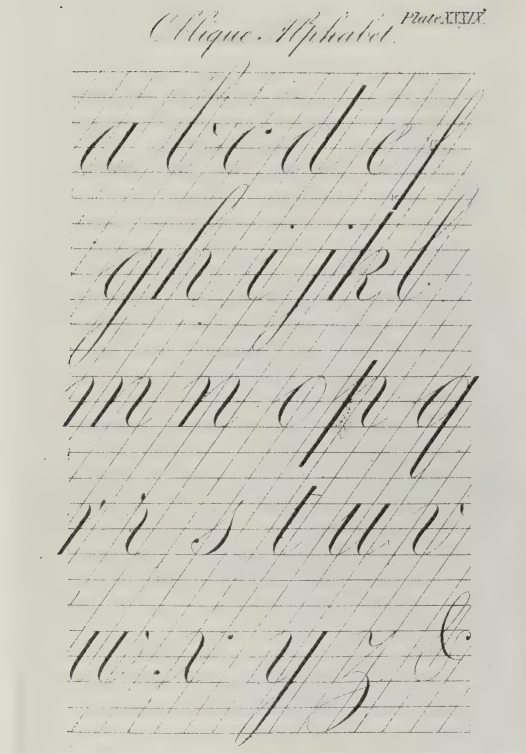 Oblique Alphabet. Plate XXXIX.
a b c d e f
g h i j k l
m n o p q
r s t u v
w x y z